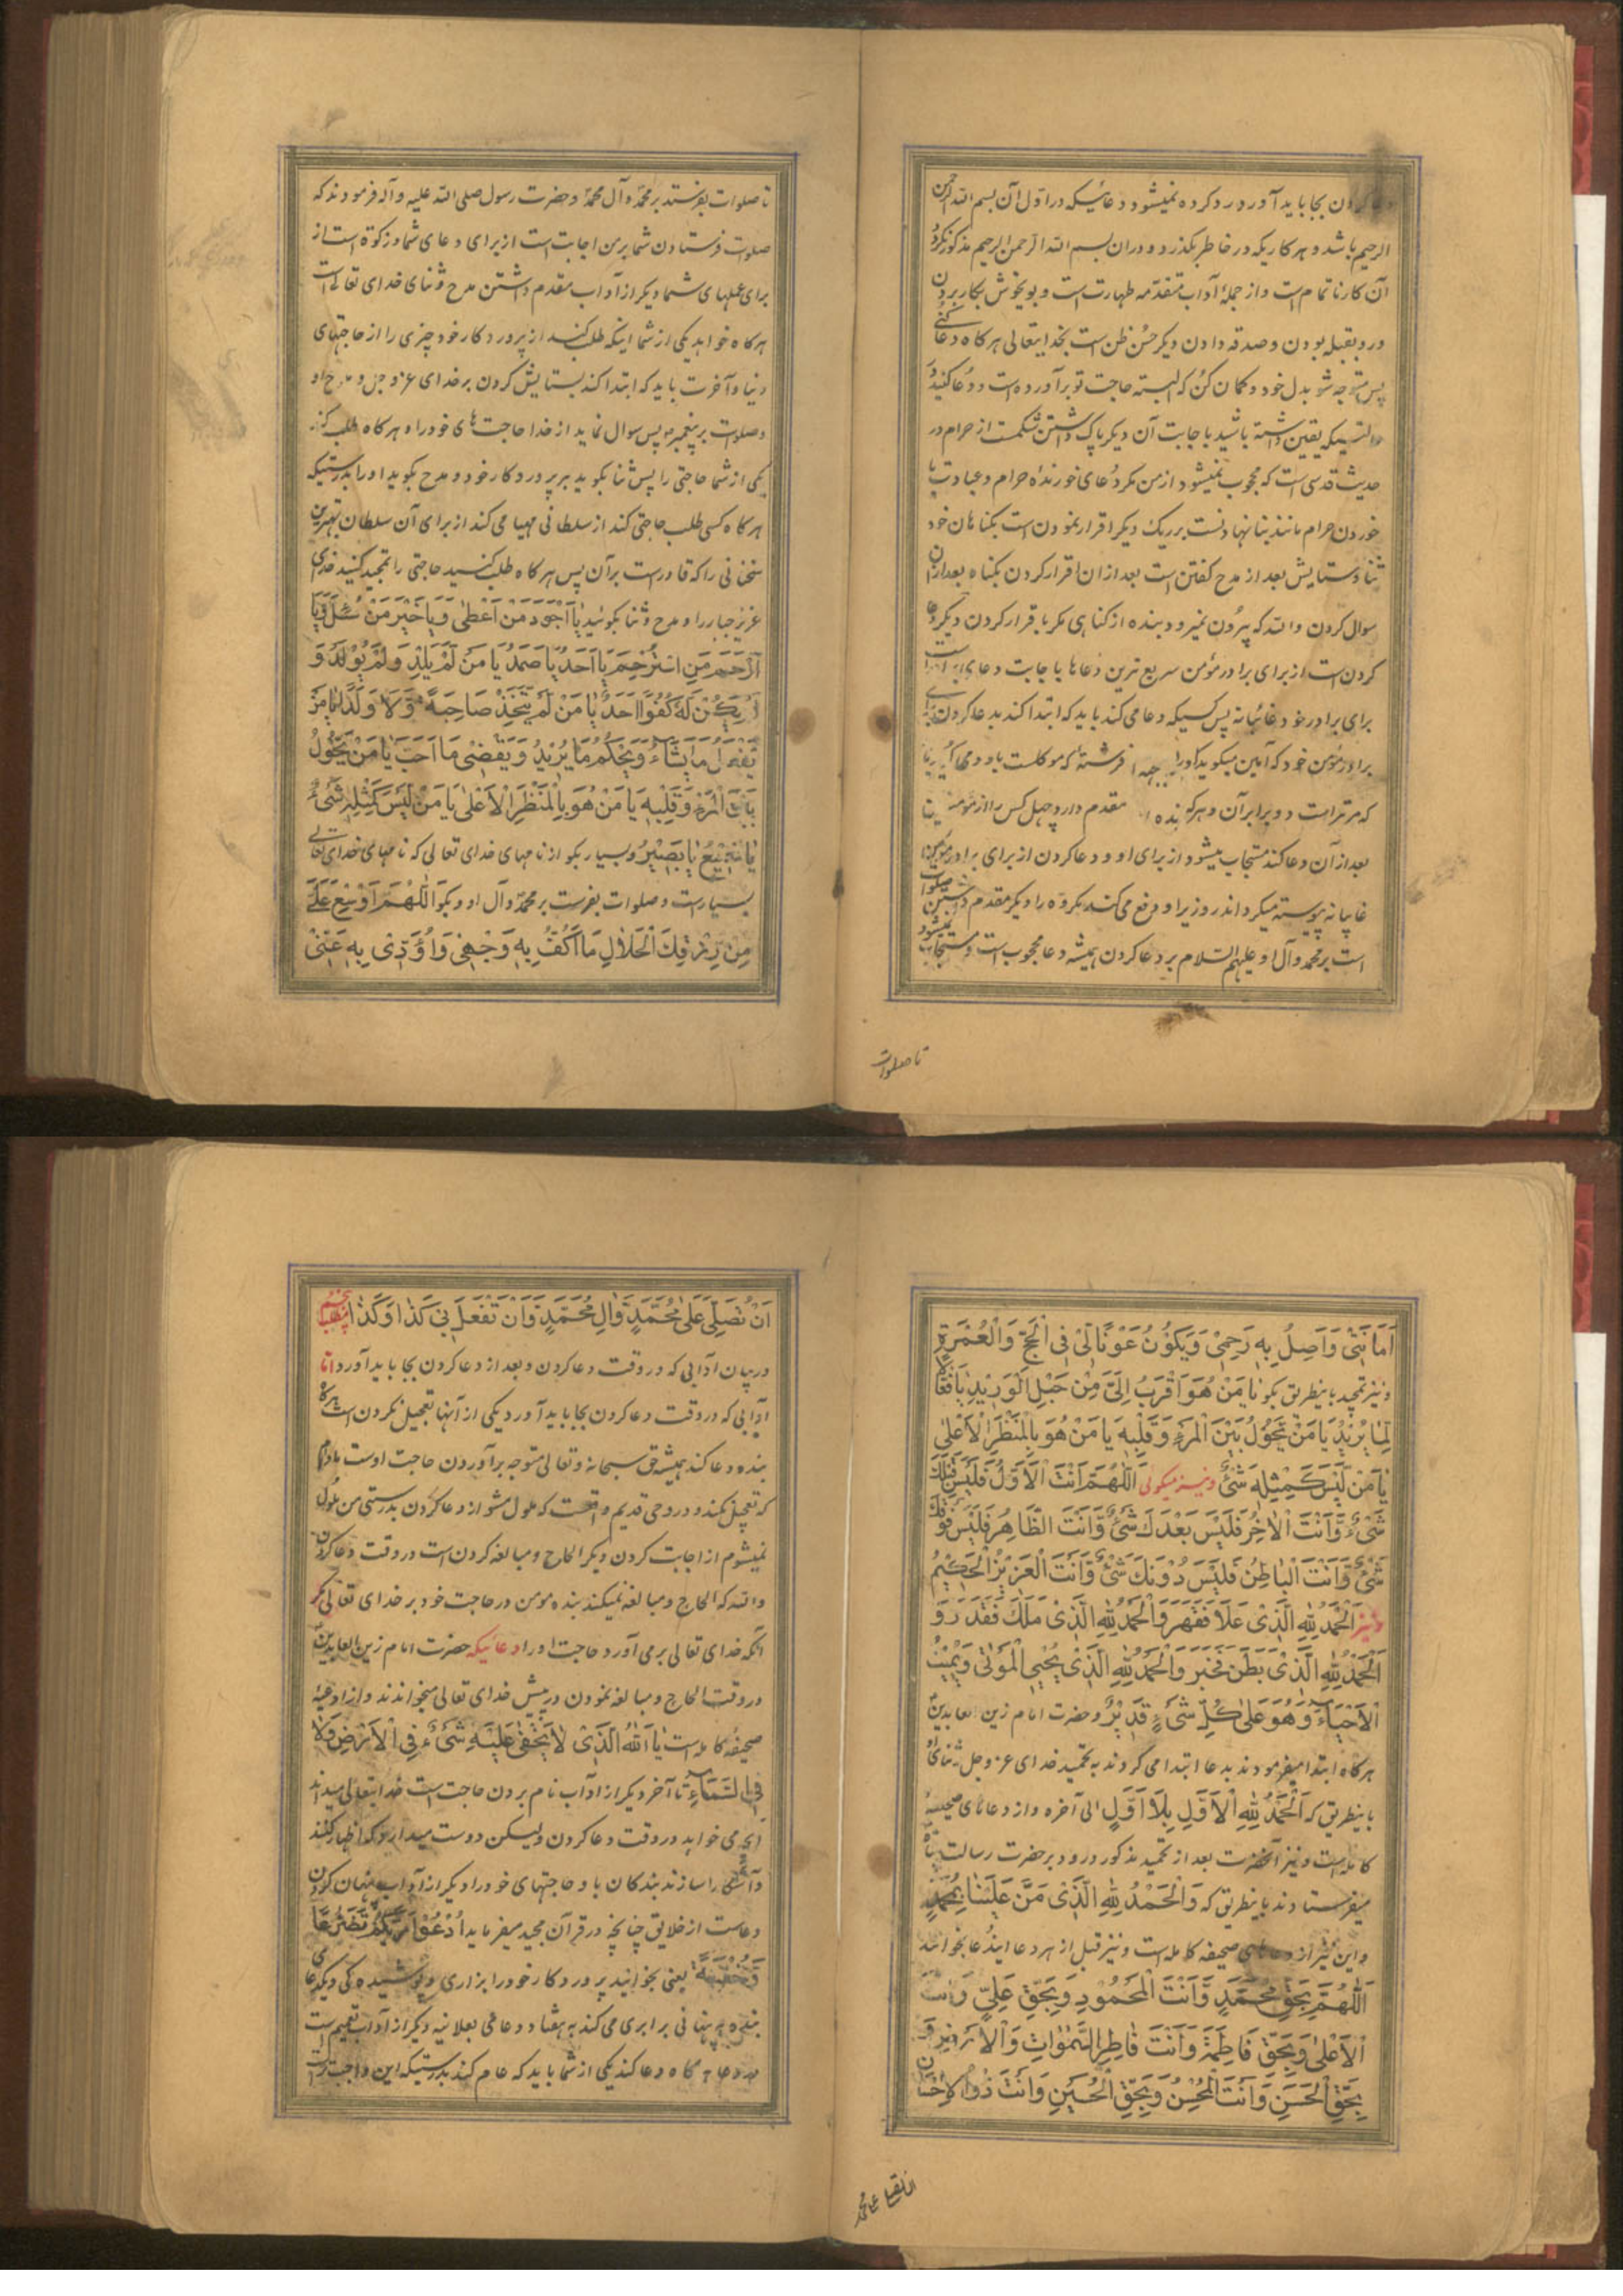 دعا کردن بجا باید آورد رد کرده نمیشود دعائیکه در اول آن بسم الله الرحمن
الرحیم باشد و هر کاریکه در خاطر بگذرد و در ان بسم الله الرحمن الرحیم مذکور نگردد
آن کار ناتمام است و از جملهٔ آداب متقدمه طهارت است و بویخوش بکار بردن
و رو بقبله بودن و صدقه دادن دیگر حسن ظن است بخدایتعالی هر کاه دعا کنی
پس متوجه شو بدل خود و کمان کن که البته حاجت تو برآورده است و دعا کنید
یقین داشته باشید باجابت آن دیگر پاک داشتن شکمت از حرام در
حدیث قدسی است که محجوب نمیشود از من مگر دعای خورندهٔ حرام و عبادت با
خوردن حرام مانند بنا نهادنست بر ریک دیگر اقرار نمودن است بکناهان خود
ثنا و ستایش بعد از مدح کفتن است بعد از ان اقرار کردن بکناه بعد از ان
سوال کردن والله که بیرون نمیرود بنده از کناهی مگر باقرار کردن دیگر دعا
کردن است از برای برادر مؤمن سریع ترین دعاها باجابت دعای
برای برادر خود غائبانه پس کسیکه دعا می کند باید که ابتدا کند بدعا کردن برای
برادر مؤمن خود که آمین میگوید او را فرشته که موکلست باو و
که مر تراست دو برابر آن و هر که بنده مقدم دارد چهل کس را از مؤمنین
بعد از آن دعا کند مستجاب میشود از برای او و دعا کردن از برای برادر مؤمن
غایبانه پیوسته میکرداند روزی را و دفع می کند مکروه را دیگر مقدم داشتن صلوات
است بر محمد و آل او علیهم السلام بر دعا کردن همیشه دعا محجوب است و مستجاب نمیشود
تا صلوات
تا صلوات بفرستند بر محمد و آل محمد و حضرت رسول صلی الله علیه و آله فرمودند که
صلوات فرستادن شما بر من اجابت است از برای دعای شما و زکوة است از
برای عملهای شما دیگر از آداب مقدم داشتن مدح و ثنای خدای تعالی است
هر کاه خواهد یکی از شما اینکه طلب کند از پروردکار خود چیزی را از حاجتهای
دنیا و آخرت باید که ابتدا کند بستایش کردن بر خدای عز و جل و مدح او
و صلوات بر پیغمبر پس سوال نماید از خدا حاجت های خود را و هر کاه طلب کند
یکی از شما حاجتی را پس ثنا بکوید بر پروردکار خود و مدح بکوید او را بدرستیکه
هر کاه کسی طلب حاجتی کند از سلطانی مهیا می کند از برای آن سلطان بهترین
سخنانی را که قادر است بر آن پس هر کاه طلب کنید حاجتی را تمجید کنید خدای
عزیز جبار را و مدح و ثنا بکوئید یَا اَجْوَدَ مَنْ اَعْطٰی وَ یَا خَیْرَ مَنْ سُئِلَ وَ یَا
اَرْحَمَ مَنِ اسْتُرْحِمَ یَا اَحَدُ یَا صَمَدُ یَا مَنْ لَمْ یَلِدْ وَ لَمْ یُوْلَدْ وَ
لَمْ یَکُنْ لَهُ کُفُوًا اَحَدٌ یَا مَنْ لَمْ یَتَّخِذْ صَاحِبَةً وَ لَا وَلَدًا یَا مَنْ
یَفْعَلُ مَا یَشَاءُ وَ یَحْکُمُ مَا یُرِیْدُ وَ یَقْضِیْ مَا اَحَبَّ یَا مَنْ یَحُوْلُ
بَیْنَ الْمَرْءِ وَ قَلْبِهِ یَا مَنْ هُوَ بِالْمَنْظَرِ الْاَعْلٰی یَا مَنْ لَیْسَ کَمِثْلِهِ شَیْءٌ
یَا سَمِیْعُ یَا بَصِیْرُ و بسیار بکو از نامهای خدای تعالی که نامهای خدای تعالی
بسیار است و صلوات بفرست بر محمد و آل او و بکو اَللّٰهُمَّ اَوْسِعْ عَلَیَّ
مِنْ رِزْقِکَ الْحَلَالِ مَا اَکُفُّ بِهِ وَجْهِیْ وَ اُؤَدِّیْ بِهِ عَنِّیْ
اَمَانَتِیْ وَ اَصِلُ بِهِ رَحِمِیْ وَ یَکُوْنُ عَوْنًا لِیْ فِی الْحَجِّ وَ الْعُمْرَةِ
و نیز تمجید باینطریق بکو یَا مَنْ هُوَ اَقْرَبُ اِلَیَّ مِنْ حَبْلِ الْوَرِیْدِ یَا فَعَّالًا
لِمَا یُرِیْدُ یَا مَنْ یَحُوْلُ بَیْنَ الْمَرْءِ وَ قَلْبِهِ یَا مَنْ هُوَ بِالْمَنْظَرِ الْاَعْلٰی
یَا مَنْ لَیْسَ کَمِثْلِهِ شَیْءٌ و نیز میکوئی اَللّٰهُمَّ اَنْتَ الْاَوَّلُ فَلَیْسَ قَبْلَکَ
شَیْءٌ وَ اَنْتَ الْاٰخِرُ فَلَیْسَ بَعْدَکَ شَیْءٌ وَ اَنْتَ الظَّاهِرُ فَلَیْسَ فَوْقَکَ
شَیْءٌ وَ اَنْتَ الْبَاطِنُ فَلَیْسَ دُوْنَکَ شَیْءٌ وَ اَنْتَ الْعَزِیْزُ الْحَکِیْمُ
و نیز اَلْحَمْدُ لِلّٰهِ الَّذِیْ عَلَا فَقَهَرَ وَ الْحَمْدُ لِلّٰهِ الَّذِیْ مَلَکَ فَقَدَرَ وَ
الْحَمْدُ لِلّٰهِ الَّذِیْ بَطَنَ فَخَبَرَ وَ الْحَمْدُ لِلّٰهِ الَّذِیْ یُحْیِی الْمَوْتٰی وَ یُمِیْتُ
الْاَحْیَاءَ وَ هُوَ عَلٰی کُلِّ شَیْءٍ قَدِیْرٌ و حضرت امام زین العابدین
هر کاه ابتدا میفرمودند بدعا ابتدا می کردند به تحمید خدای عز و جل و ثنای او
باینطریق که اَلْحَمْدُ لِلّٰهِ الْاَوَّلِ بِلَا اَوَّلٍ الی آخره و از دعاهای صحیفهٔ
کامله است و نیز آنحضرت بعد از تحمید مذکور درود بر حضرت رسالت پناه
میفرستادند باینطریق که وَ الْحَمْدُ لِلّٰهِ الَّذِیْ مَنَّ عَلَیْنَا بِمُحَمَّدٍ
و این نیز از دعاهای صحیفه کامله است و نیز قبل از هر دعا ایندعا بخوانند
اَللّٰهُمَّ بِحَقِّ مُحَمَّدٍ وَ اَنْتَ الْمَحْمُوْدُ وَ بِحَقِّ عَلِیٍّ وَ اَنْتَ
الْاَعْلٰی وَ بِحَقِّ فَاطِمَةَ وَ اَنْتَ فَاطِرُ السَّمٰوَاتِ وَ الْاَرْضِ وَ
بِحَقِّ الْحَسَنِ وَ اَنْتَ الْمُحْسِنُ وَ بِحَقِّ الْحُسَیْنِ وَ اَنْتَ ذُو الْاِحْسَانِ
ان تصلی علی محمد
اَنْ تُصَلِّیَ عَلٰی مُحَمَّدٍ وَ اٰلِ مُحَمَّدٍ وَ اَنْ تَفْعَلَ بِیْ کَذَا وَ کَذَا مطلب پنجم
در بیان آدابی که در وقت دعا کردن و بعد از دعا کردن بجا باید آورد اما
آدابی که در وقت دعا کردن بجا باید آورد یکی از آنها تعجیل نکردن است هر کاه
بنده دعا کند همیشه حق سبحانه و تعالی متوجه برآوردن حاجت اوست مادام
که تعجیل نکند و در وحی قدیم واقعست که ملول مشو از دعا کردن بدرستی من ملول
نمیشوم از اجابت کردن دیگر الحاح و مبالغه کردن است در وقت دعا کردن
والله که الحاح و مبالغه نمیکند بنده مومن در حاجت خود بر خدای تعالی مگر
آنکه خدای تعالی برمی آورد حاجت او را دعائیکه حضرت امام زین العابدین
در وقت الحاح و مبالغه نمودن در پیش خدای تعالی میخواندند و از ادعیهٔ
صحیفه کامله است یَا اَللّٰهُ الَّذِیْ لَا یَخْفٰی عَلَیْهِ شَیْءٌ فِی الْاَرْضِ وَ لَا
فِی السَّمَاءِ تا آخر دیگر از آداب نام بردن حاجت است خدایتعالی میداند
آنچه می خواهد در وقت دعا کردن ولیکن دوست میدارد که اظهار کنند
و آشکار سازند بندکان باو حاجتهای خود را دیگر از آداب پنهان کردن
دعاست از خلایق چنانچه در قرآن مجید میفرماید اُدْعُوْا رَبَّکُمْ تَضَرُّعًا
وَ خُفْیَةً یعنی بخوانید پروردکار خود را بزاری و پوشیده کی دیگر دعای
بنده به پنهانی برابری می کند به هفتاد دعای بعلانیه دیگر از آداب تعمیم است
در دعا هر کاه دعا کند یکی از شما باید که عام کند بدرستیکه این واجب تر است